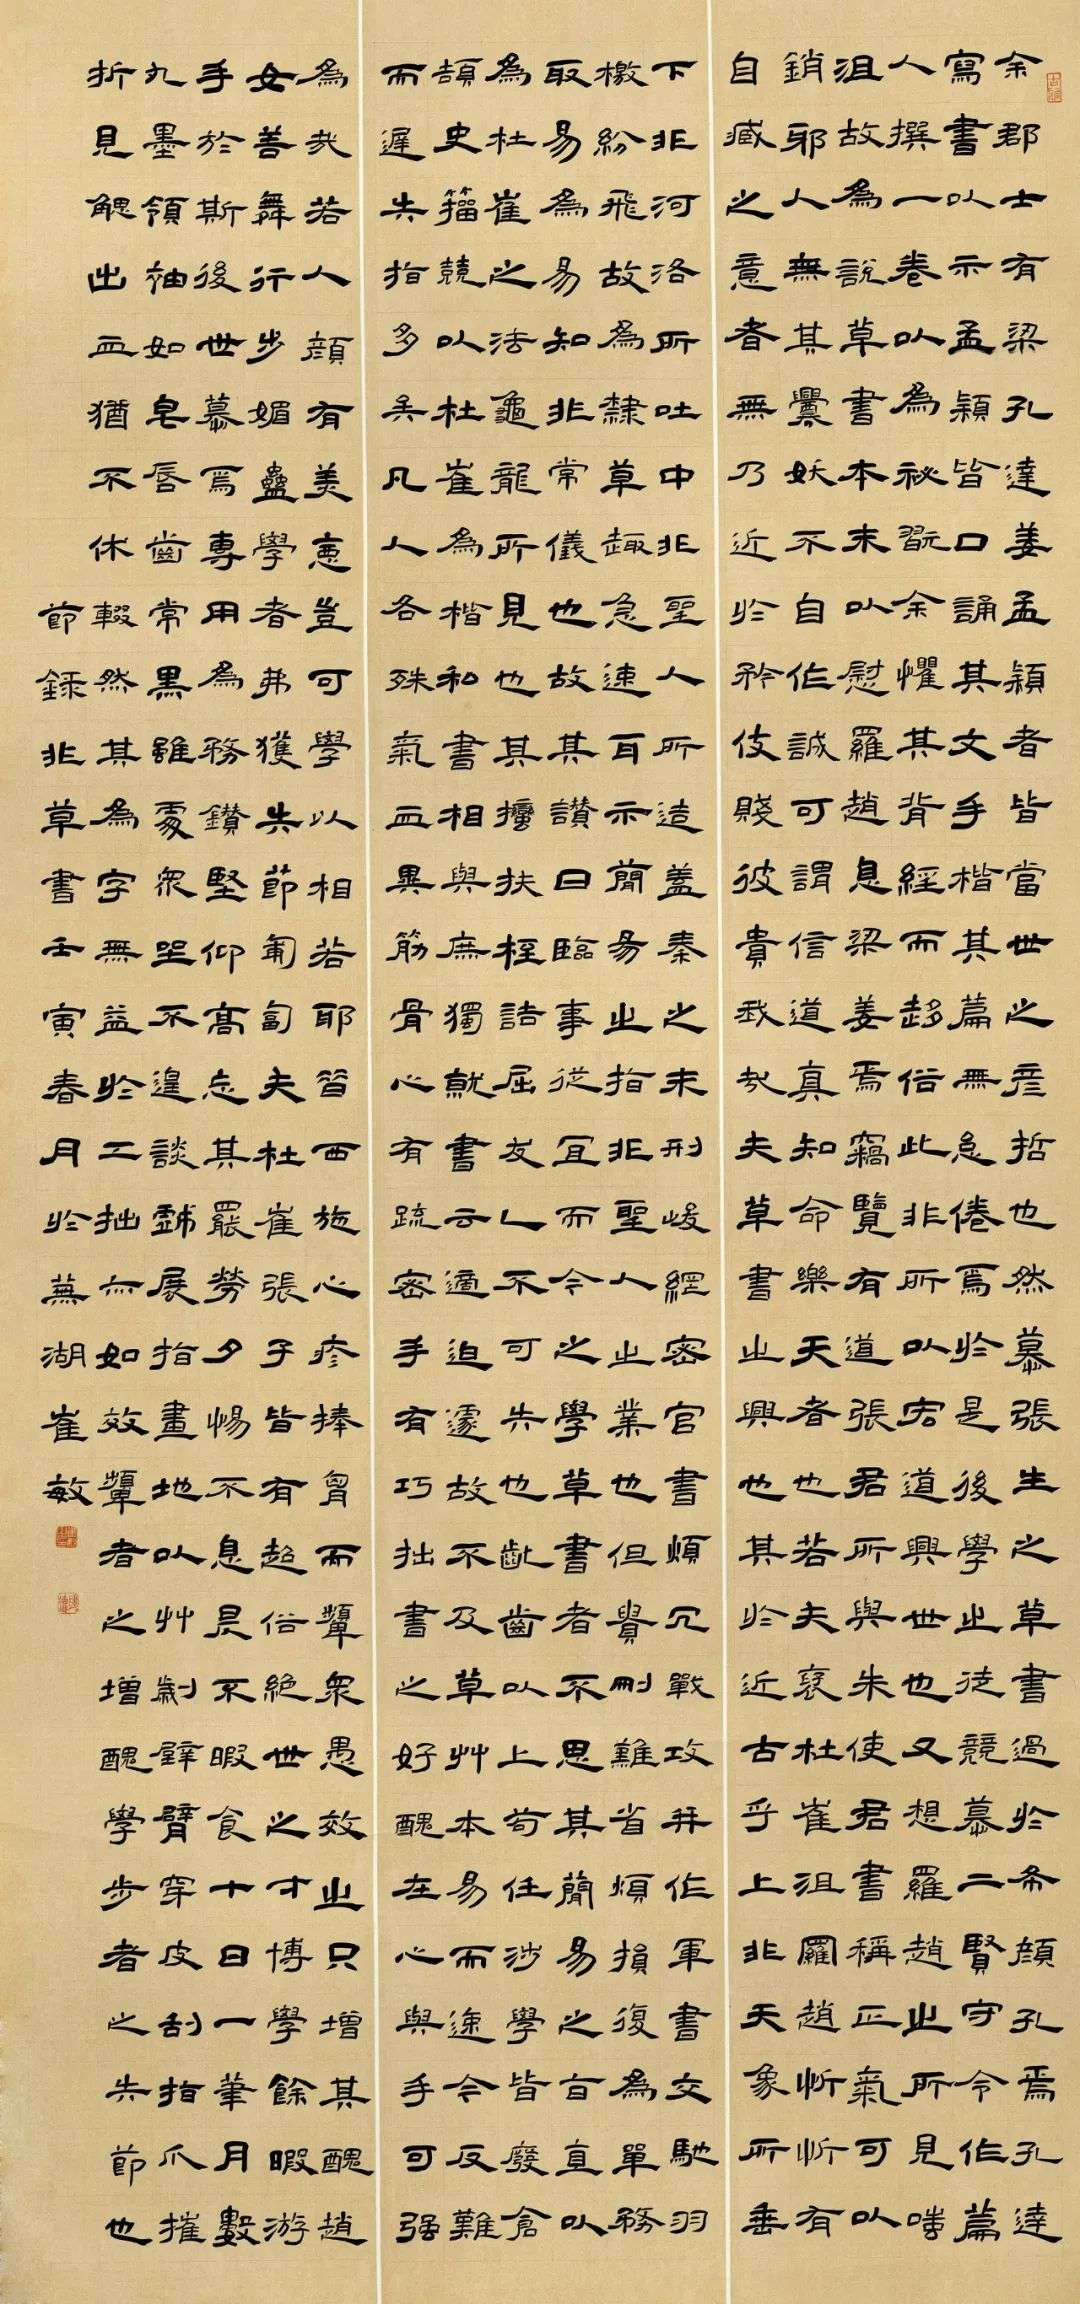 余郡士有梁孔達姜孟穎者皆當世之彥哲也然慕張生之草書過於希顏孔焉孔達
寫書以示孟穎皆口誦其文手楷其篇無怠倦焉於是後學之徒競慕二賢守令作篇
人撰一卷以為祕翫余懼其背經而趍俗此非所以宏道興世也又想羅趙之所見嗤
沮故為說草書本末以慰羅趙息梁姜焉竊覽有道張君所與朱使君書稱正氣可以
銷邪人無其釁妖不自作誠可謂信道真知命樂天者也若夫褒杜崔沮羅趙忻忻有
自臧之意者無乃近於矜伎賤彼貴我哉夫草書之興也其於近古乎上非天象所垂
下非河洛所吐中非聖人所造蓋秦之末刑峻網密官書煩冗戰攻并作軍書交馳羽
檄紛飛故為隸草趣急速耳示簡易之指非聖人之業也但貴刪難省煩損復為單務
取易為易知非常儀也故其讚曰臨事從宜而今之學草書者不思其簡易之旨直以
為杜崔之法龜龍所見也其扶桎詰屈犮乚不可失也齔齒以上苟任涉學皆廢倉
頡史籀競以杜崔為楷和書相與庶獨就書云適迫遽故不及草艸本易而速今反難
而遲失指多矣凡人各殊氣血異筋骨心有疏密手有巧拙書之好醜在心與手可强
為哉若人顏有美惡豈可學以相若耶昔西施心疹捧胷而顰眾愚效之只增其醜趙
女善舞行步媚蠱學者弗獲失節匍匐夫杜崔張子皆有超俗絕世之才博學餘暇游
手於斯後世慕焉專用為務鑽堅仰高忘其罷勞夕惕不息昃不暇食十日一筆月數
丸墨領袖如皂唇齒常黑雖處眾坐不遑談戲展指畫地以艸劌壁臂穿皮刮指爪摧
折見䚡出血猶不休輟然其為字無益於工拙亦如效顰者之增醜學步者之失節也
節錄非草書壬寅春月於蕪湖崔敏